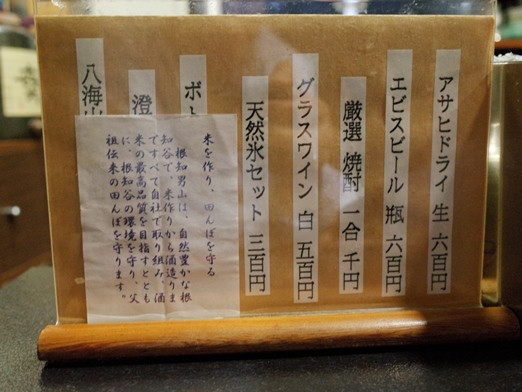 アサヒドライ 生 六百円
エビスビール 瓶 六百円
厳選 焼酎 一合 千円
グラスワイン 白 五百円
天然氷セット 三百円
ボト
澄
八海山
米を作り、田んぼを守る
根知男山は、自然豊かな根
知谷で、米作りから酒造りま
ですべて自社で取り組み、酒
米の最高品質を目指すととも
に、根知谷の環境を守り、父
祖伝来の田んぼを守ります。